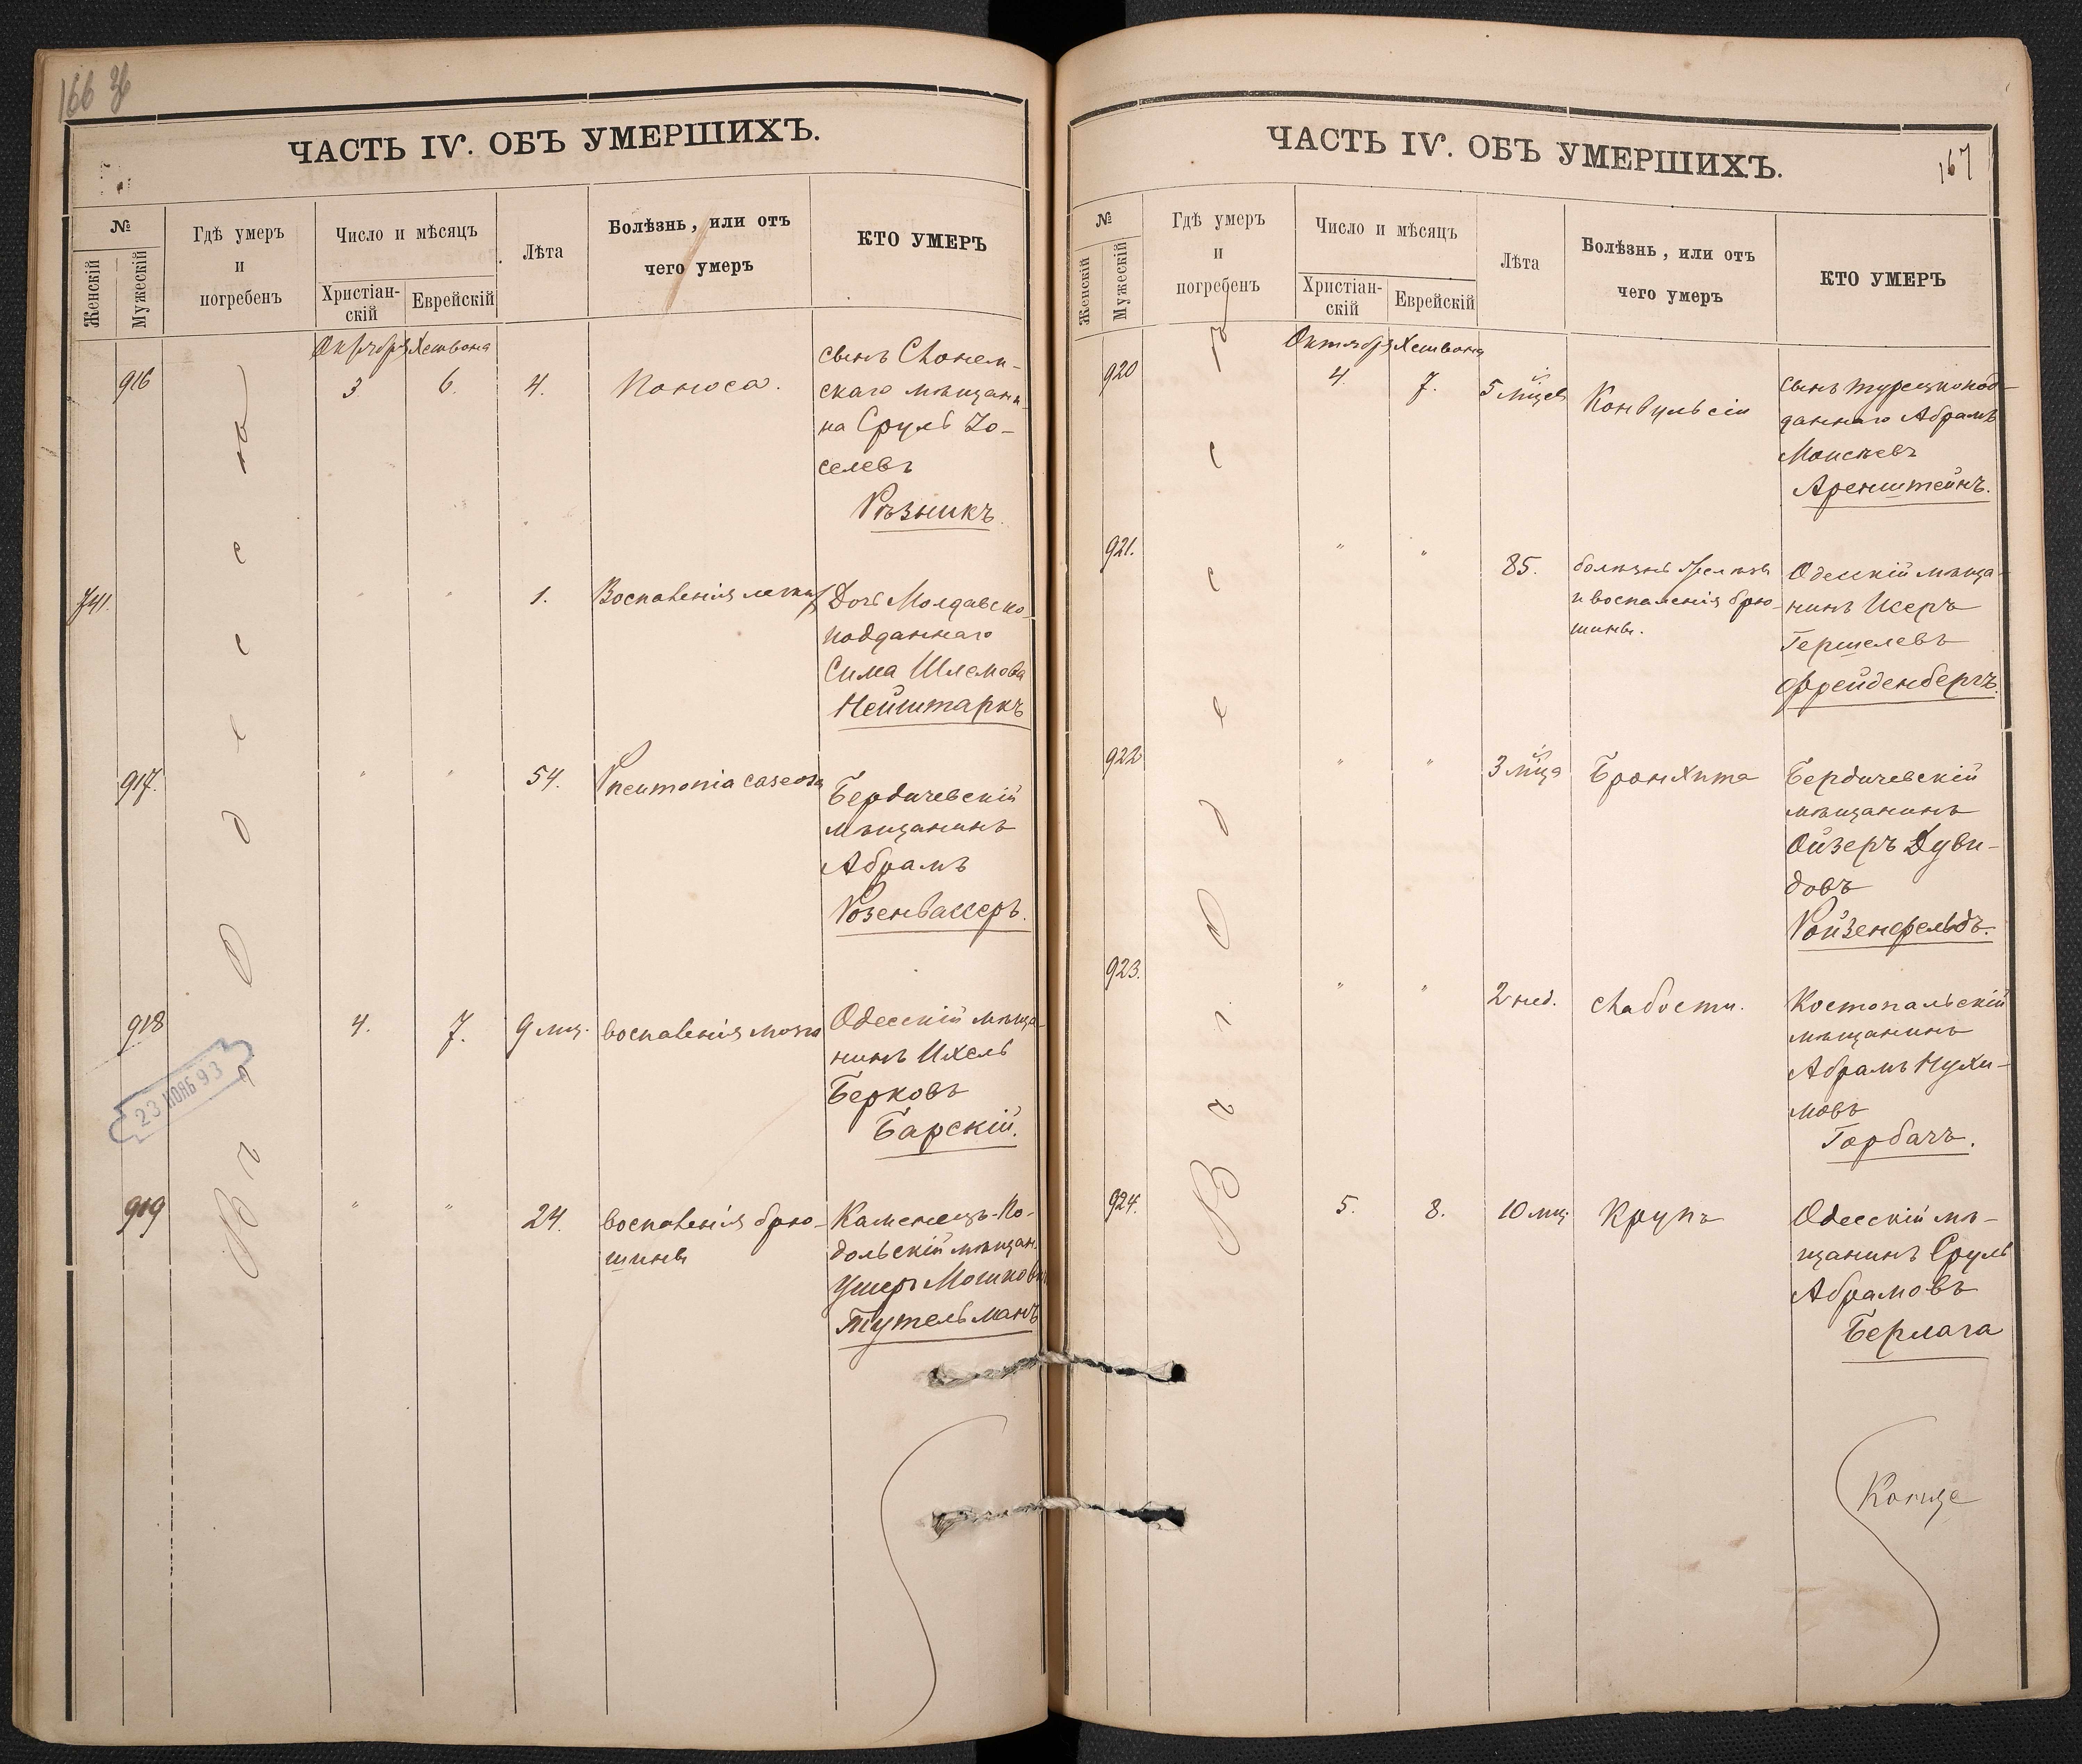 166 об
ЧАСТЬ IV. ОБЪ УМЕРШИХЪ.
№
Женскій
Мужескій
Гдѣ умеръ
и
погребенъ
Число и мѣсяцъ
Христіан-
скій
Еврейскій
Лѣта
Болѣзнь, или отъ
чего умеръ
КТО УМЕРЪ
Въ г. Одесса
Октябрь
Хешвона
916
3
6.
4.
Поноса.
сынъ Слоним-
скаго мѣщани-
на Сруль Іо-
селевъ
Рѣзникъ.
741.
"
"
1.
Воспаленія легких
Дочь Молдавско-
подданнаго
Сима Шлемова
Нейштаркъ
917.
"
"
54.
Pneumonia caseosa
Бердичевскій
мѣщанинъ
Абрамъ
Розенвассеръ.
918
4.
7.
9 мц.
воспаленія мозга
Одесскій мѣща-
нинъ Ихель
Берковъ
Барскій.
23 НОЯБ 93
919
"
"
24.
воспаленія брю-
шины
Каменецъ-По-
дольскій мѣщан.
Ушеръ Мошковъ
Тутельманъ
ЧАСТЬ IV. ОБЪ УМЕРШИХЪ.
167
№
Женскій
Мужескій
Гдѣ умеръ
и
погребенъ
Число и мѣсяцъ
Христіан-
скій
Еврейскій
Лѣта
Болѣзнь, или отъ
чего умеръ
КТО УМЕРЪ
Въ г. Одессѣ
Октябрь
Хешвона
920
4.
7.
5 мцев
Конвульсіи
сынъ турецкопод-
даннаго Абрамъ
Моисеевъ
Аренштейнъ.
921.
"
"
85.
болѣзнь
и воспаленія брю-
шины.
Одесскій мѣща-
нинъ Исеръ
Гершелевъ
Фрейденбергъ.
922
"
"
3 мца
Бронхита
Бердичевскій
мѣщанинъ
Ойзеръ Дуви-
довъ
Ройзенфельдъ.
923.
"
"
2 нед.
слабости.
Костопальскій
мѣщанинъ
Абрамъ Нухи-
мовъ
Горбачъ.
924.
5.
8.
10 мц
Крупъ
Одесскій мѣ-
щанинъ Сруль
Абрамовъ
Берлага